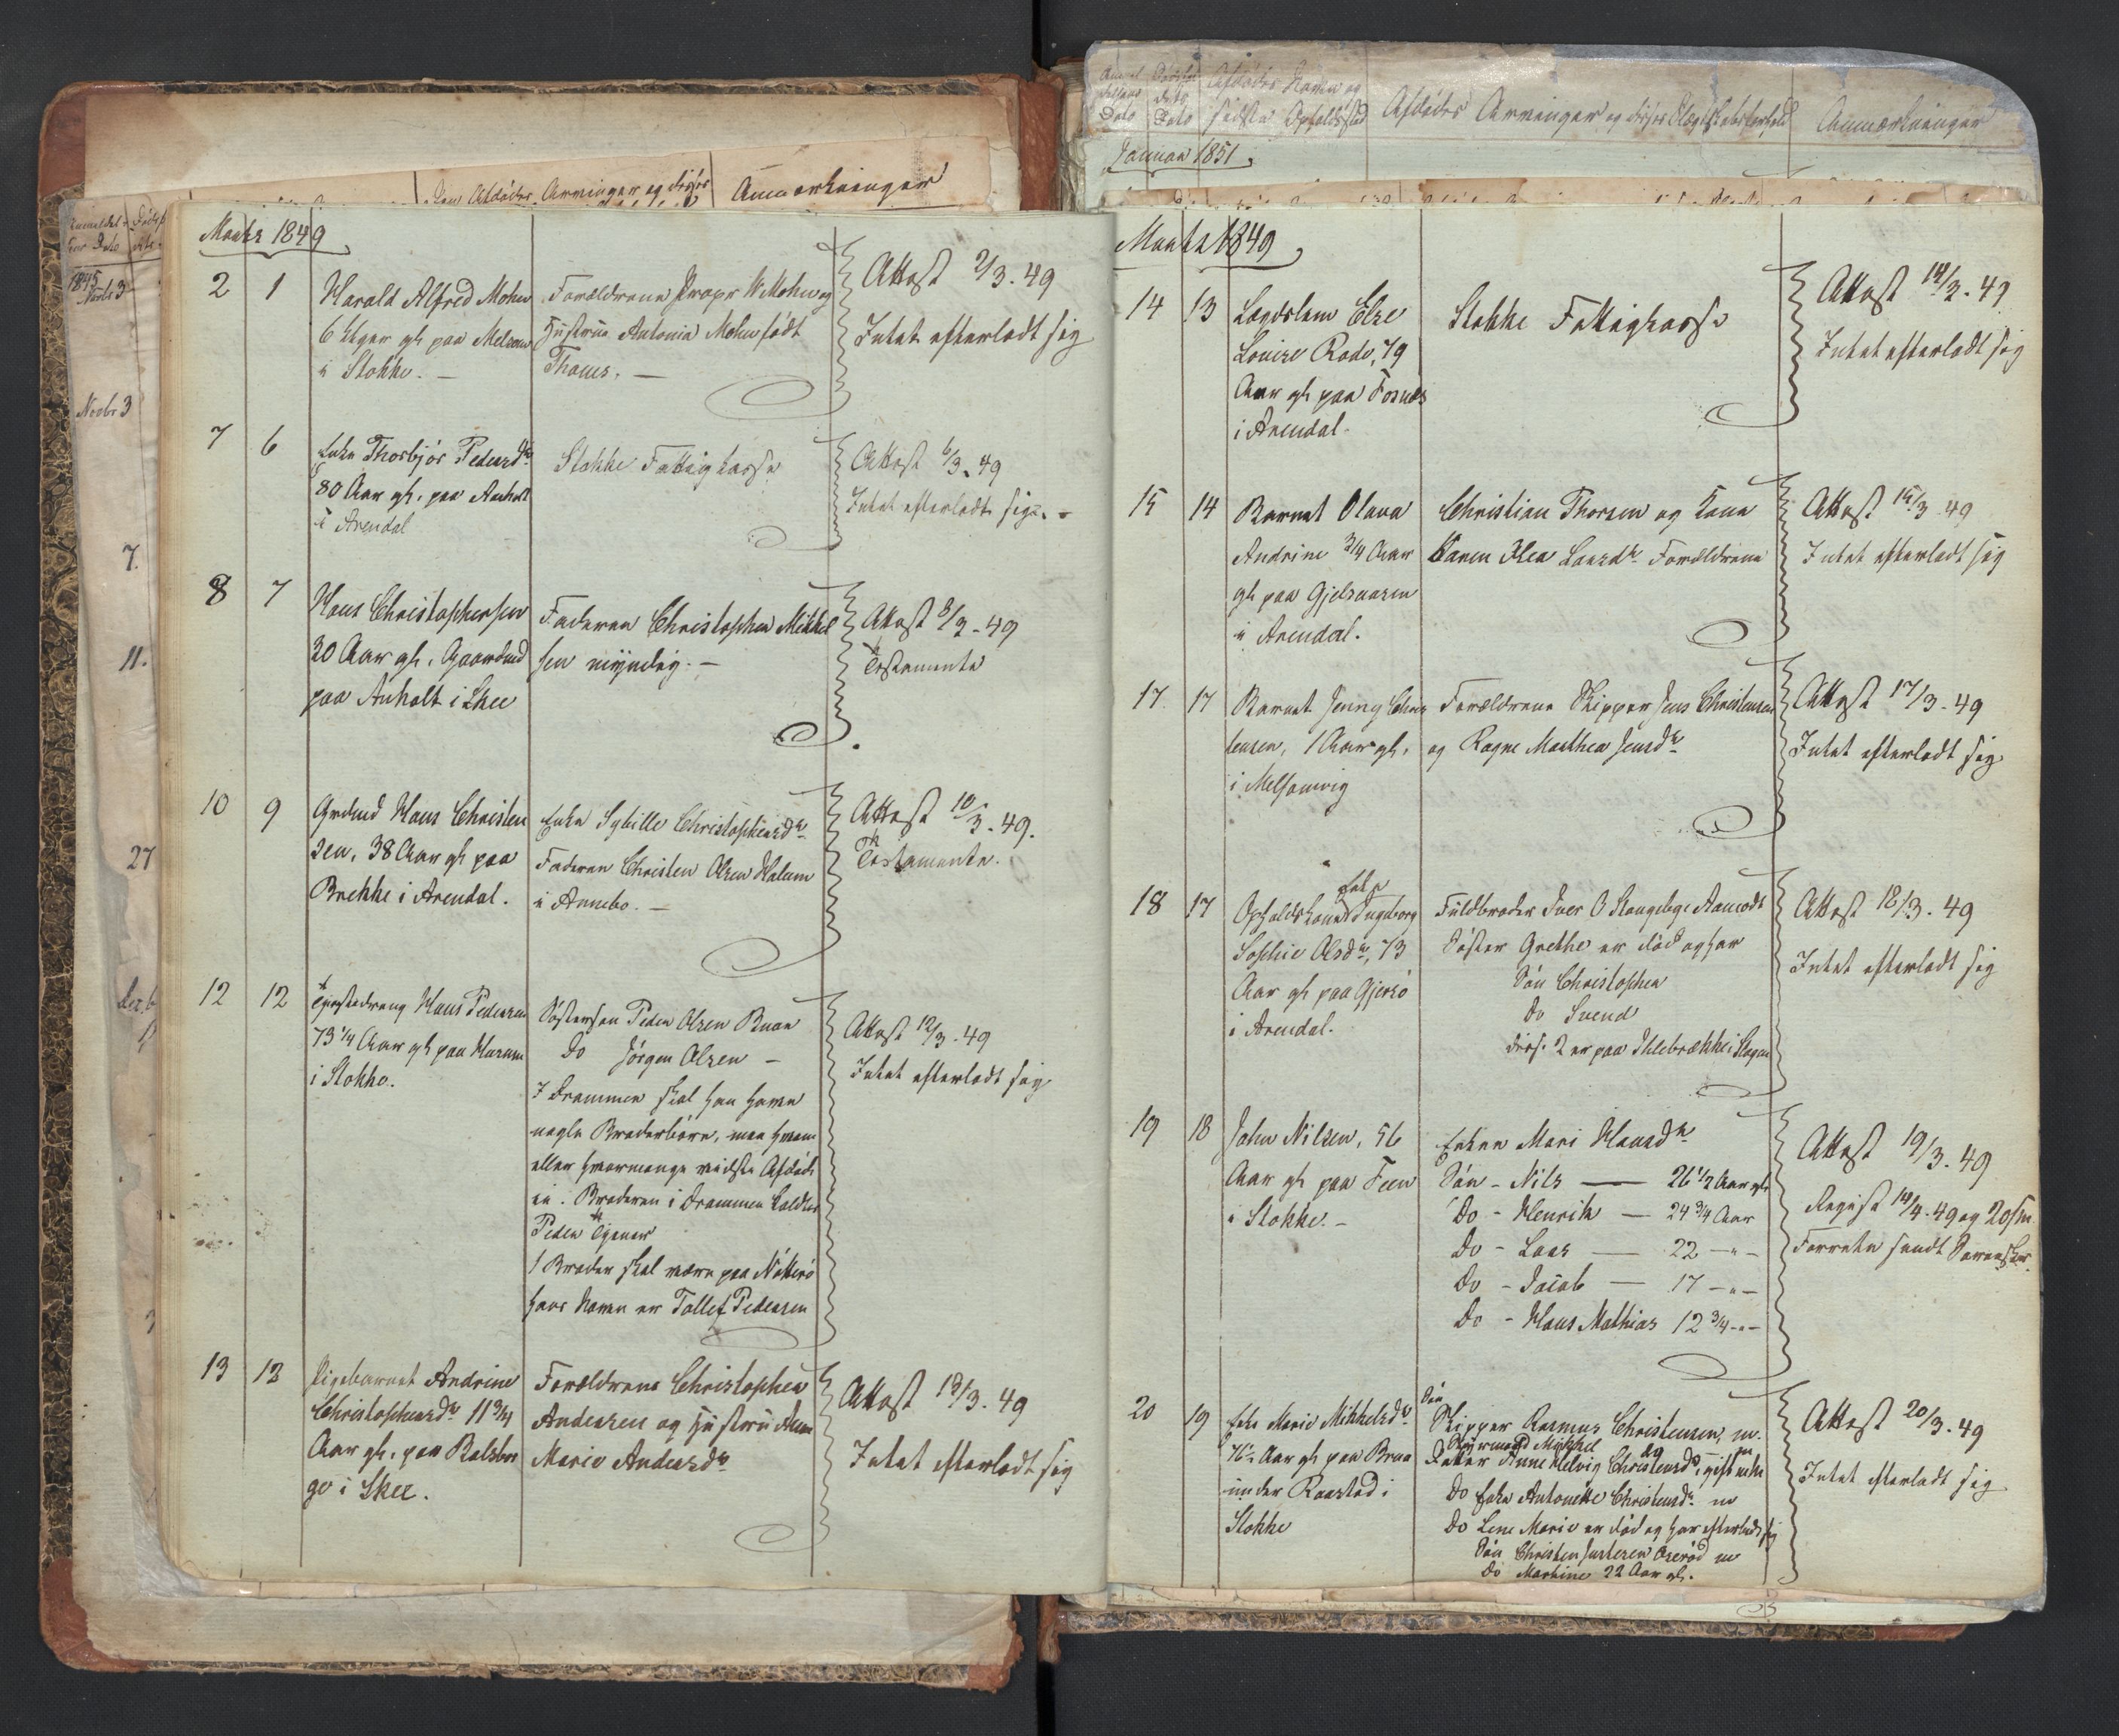 Anmærkninger
Marts 1849
2 1 Harald Alfred Mohn Forældrene Propr W Mohn og Attest 2/3. 49
6 Uger gl. paa Melsom Hustrue Antonia Mohn født Intet efterladt sig
i Stokke. — Thaus. —
7 6 Enke Thorbjør Pedersdr Stokke Fattigkasse Attest 6/3. 49
80 Aar gl. paa Anholt Intet efterladt sig. -
i Arendal
8 7 Hans Christophersen Faderen Christopher Mikkel Attest 8/3 - 49
30 Aar gl. Gaardmd sen myndig. — Testamente
paa Anholt i Skee
10 9 Grdmd Hans Christen Enke Sybille Christophersdr Attest 10/3. 49.
sen, 38 Aar gl paa Faderen Christen Olsen Halum Testamente.
Brekke i Arendal. i Arnebo. —
12 12 Tjenstedreng Hans Pedersen Søstersøn Peder Olsen Buan Attest 12/3. 49
73 1/4 Aar gl paa Harum Do Jørgen Olsen — Intet efterladt sig
i Stokke.
I Drammen skal han have
nogle Broderbørn, men hvem
eller hvormange vidste Afdøde
ei. Broderen i Drammen kaldtes
Peder Tjener
1 Broder skal være paa Nøtterø
hans Navn er Tollef Pedersen
13 12 Pigebarnet Andrine Forældrene Christopher Attest 13/3. 49
Christophersdr 11 3/4 Andersen og Hustru Anne Intet efterladt sig
Aar gl. paa Balsbor Marie Andersdr
ge i Skee.
Anmel Dødsfal Afdødes Navn og
delsens dets Afdødes Arvinger og disses Slægtskabsforhold Anmærkninger
Dato Dato sidste Opholdsted
Januar 1851
Marts 1849
14 13 Lægdslem Else Stokke Fattigkasse Attest 14/3. 49
Louise Rode, 79 Intet efterladt sig
Aar gl paa Fosnæs
i Arendal.
15 14 Barnet Olava Christian Thorsen og Kone Attest 15/3 49
Andrine 3/4 Aar Karen Elea Larsdr Forældrene Intet efterladt sig
gl paa Gjelsaasen
i Arendal.
17 17 Barnet Jenny Chris Forældrene Skipper Jens Christensen Attest 17/3. 49
tensen, 1 Aar gl. og Ragne Marthea Jensdr Intet efterladt sig
i Melsomvig
18 17 Opholdskone Ingeborg Fuldbroder Iver O Stangebye Aamodt Attest 18/3. 49
Sophie Olsdr, 73 Søster Grethe er død og har Intet efterladt sig
Aar gl paa Gjersø Søn Christopher
i Arendal. Do Svend
disse 2 er paa Ihlebrække i Slagen
19 18 John Nilsen, 56 Enken Mari Hansdr Attest 19/3. 49
Aar gl paa Feen Søn - Nils — 26 1/2 Aar gl
i Stokke. - Do - Henrik — 24 3/4 Aar
Do - Lars — 22 — " —
Do - Jacob — 17 — " —
Do - Hans Mathias 12 3/4 — " —
Regist 14/4. 49 og
Forrets sendt Sorenskr.
20 19 Enke Marie Mikkelsdr Søn Attest 20/3. 49
76 Aar gl paa Brua Skipper Rasmus Christensen, m.
under Raastad i Styrmand Mikkel do m
Stokke Datter Anne Helvig Christensdr, gift
Do Enke Antonette Christensdr m Intet efterladt sig
Do Lene Marie er død og har efterladt sig
Søn Christen Justesen Oserød m
Do Martine 22 Aar gl.